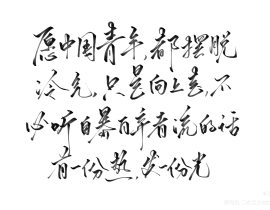 愿中国青年,都摆脱
冷气,只是向上走,不
必听自暴自弃者流的话
有一份热,发一份光